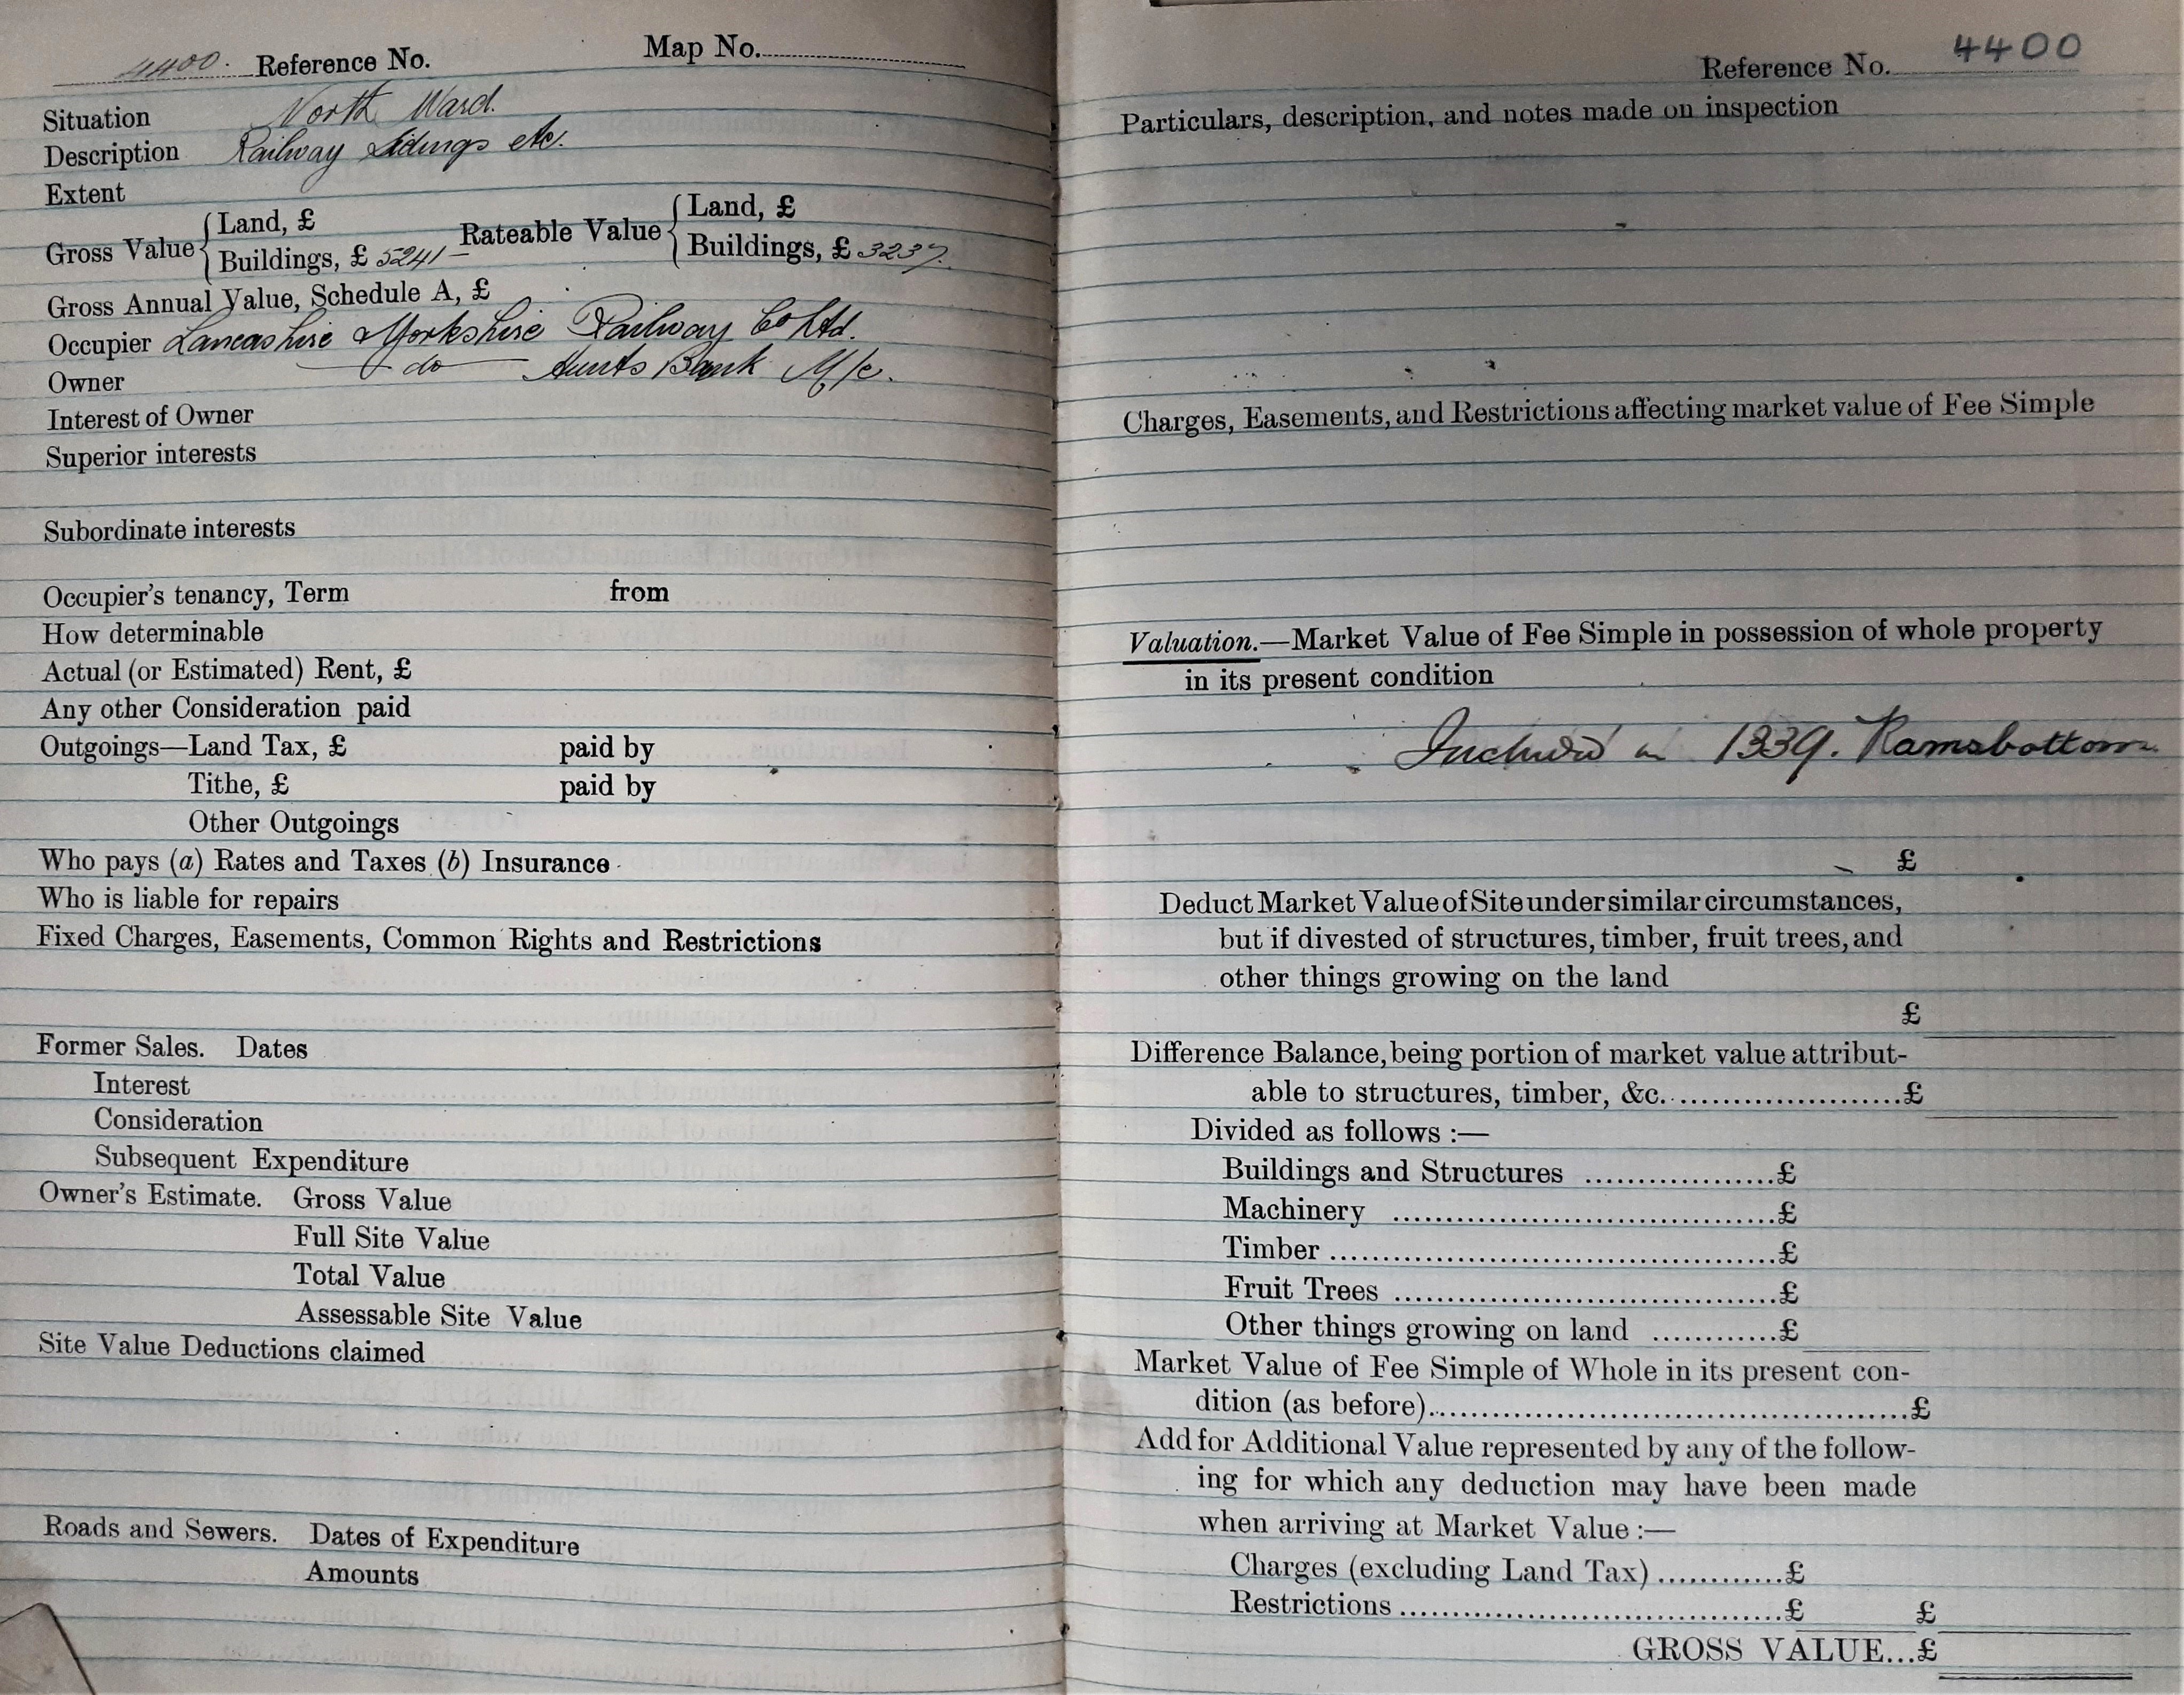 4400. Reference No. Map No.
Situation North Ward.
Description Railway Sidings etc.
Extent
Gross Value { Land, £ Rateable Value { Land, £
Buildings, £ 5241 – Buildings, £ 3237.
Gross Annual Value, Schedule A, £
Occupier Lancashire & Yorkshire Railway Co Ltd.
Owner do Hunts Bank M/c.
Interest of Owner
Superior interests
Subordinate interests
Occupier's tenancy, Term from
How determinable
Actual (or Estimated) Rent, £
Any other Consideration paid
Outgoings—Land Tax, £ paid by
Tithe, £ paid by
Other Outgoings
Who pays (a) Rates and Taxes (b) Insurance
Who is liable for repairs
Fixed Charges, Easements, Common Rights and Restrictions
Former Sales. Dates
Interest
Consideration
Subsequent Expenditure
Owner's Estimate. Gross Value
Full Site Value
Total Value
Assessable Site Value
Site Value Deductions claimed
Roads and Sewers. Dates of Expenditure
Amounts
Reference No. 4400
Particulars, description, and notes made on inspection
Charges, Easements, and Restrictions affecting market value of Fee Simple
Valuation.—Market Value of Fee Simple in possession of whole property
in its present condition
Included in 1339. Ramsbottom
£
Deduct Market Value of Site under similar circumstances,
but if divested of structures, timber, fruit trees, and
other things growing on the land
£
Difference Balance, being portion of market value attribut-
able to structures, timber, &c. £
Divided as follows :—
Buildings and Structures £
Machinery £
Timber £
Fruit Trees £
Other things growing on land £
Market Value of Fee Simple of Whole in its present con-
dition (as before) £
Add for Additional Value represented by any of the follow-
ing for which any deduction may have been made
when arriving at Market Value :—
Charges (excluding Land Tax) £
Restrictions £ £
GROSS VALUE...£